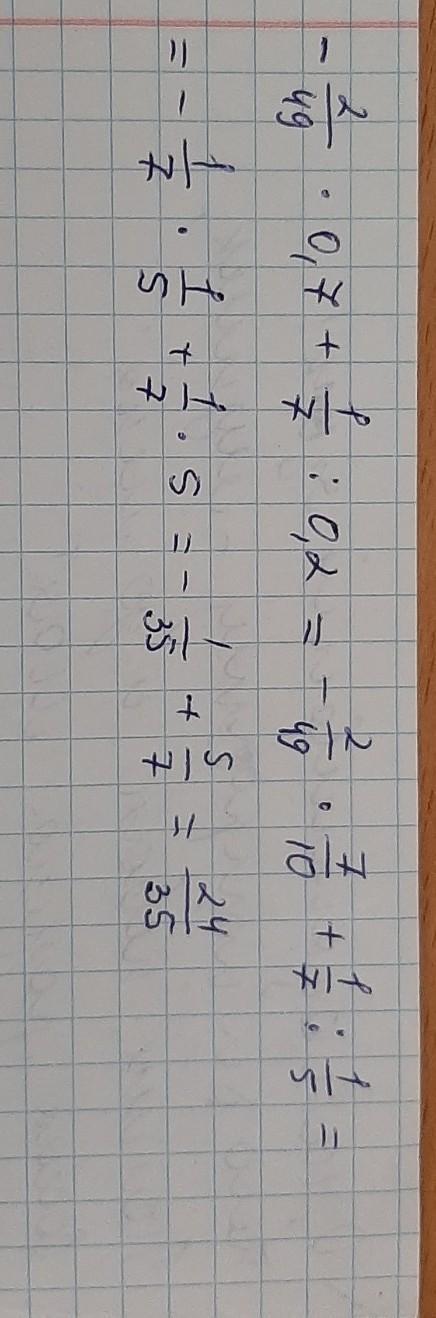 - 2/49 · 0,7 + 1/7 : 0,2 = - 2/49 · 7/10 + 1/7 : 1/5 =
= - 1/7 · 1/5 + 1/7 · 5 = - 1/35 + 5/7 = 24/35